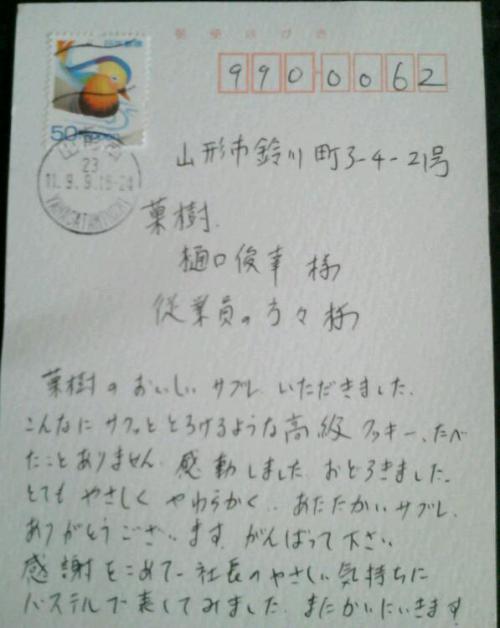 郵便はがき
50
9900062
23
11.9.9.18-24
山形市鈴川町3-4-21号
菓樹
樋口俊幸 様
従業員の方々様
菓樹のおいしい サブレ いただきました、
こんなに サクッと とろけるような 高級 クッキー、たべ
たことありません 感動しました おどろきました。
とても やさしく やわらかく、あたたかい サブレ、
ありがとうございます がんばって下さい
感謝をこめて 社長の やさしい 気持ちに
パステルで 表してみました またかいにいきます